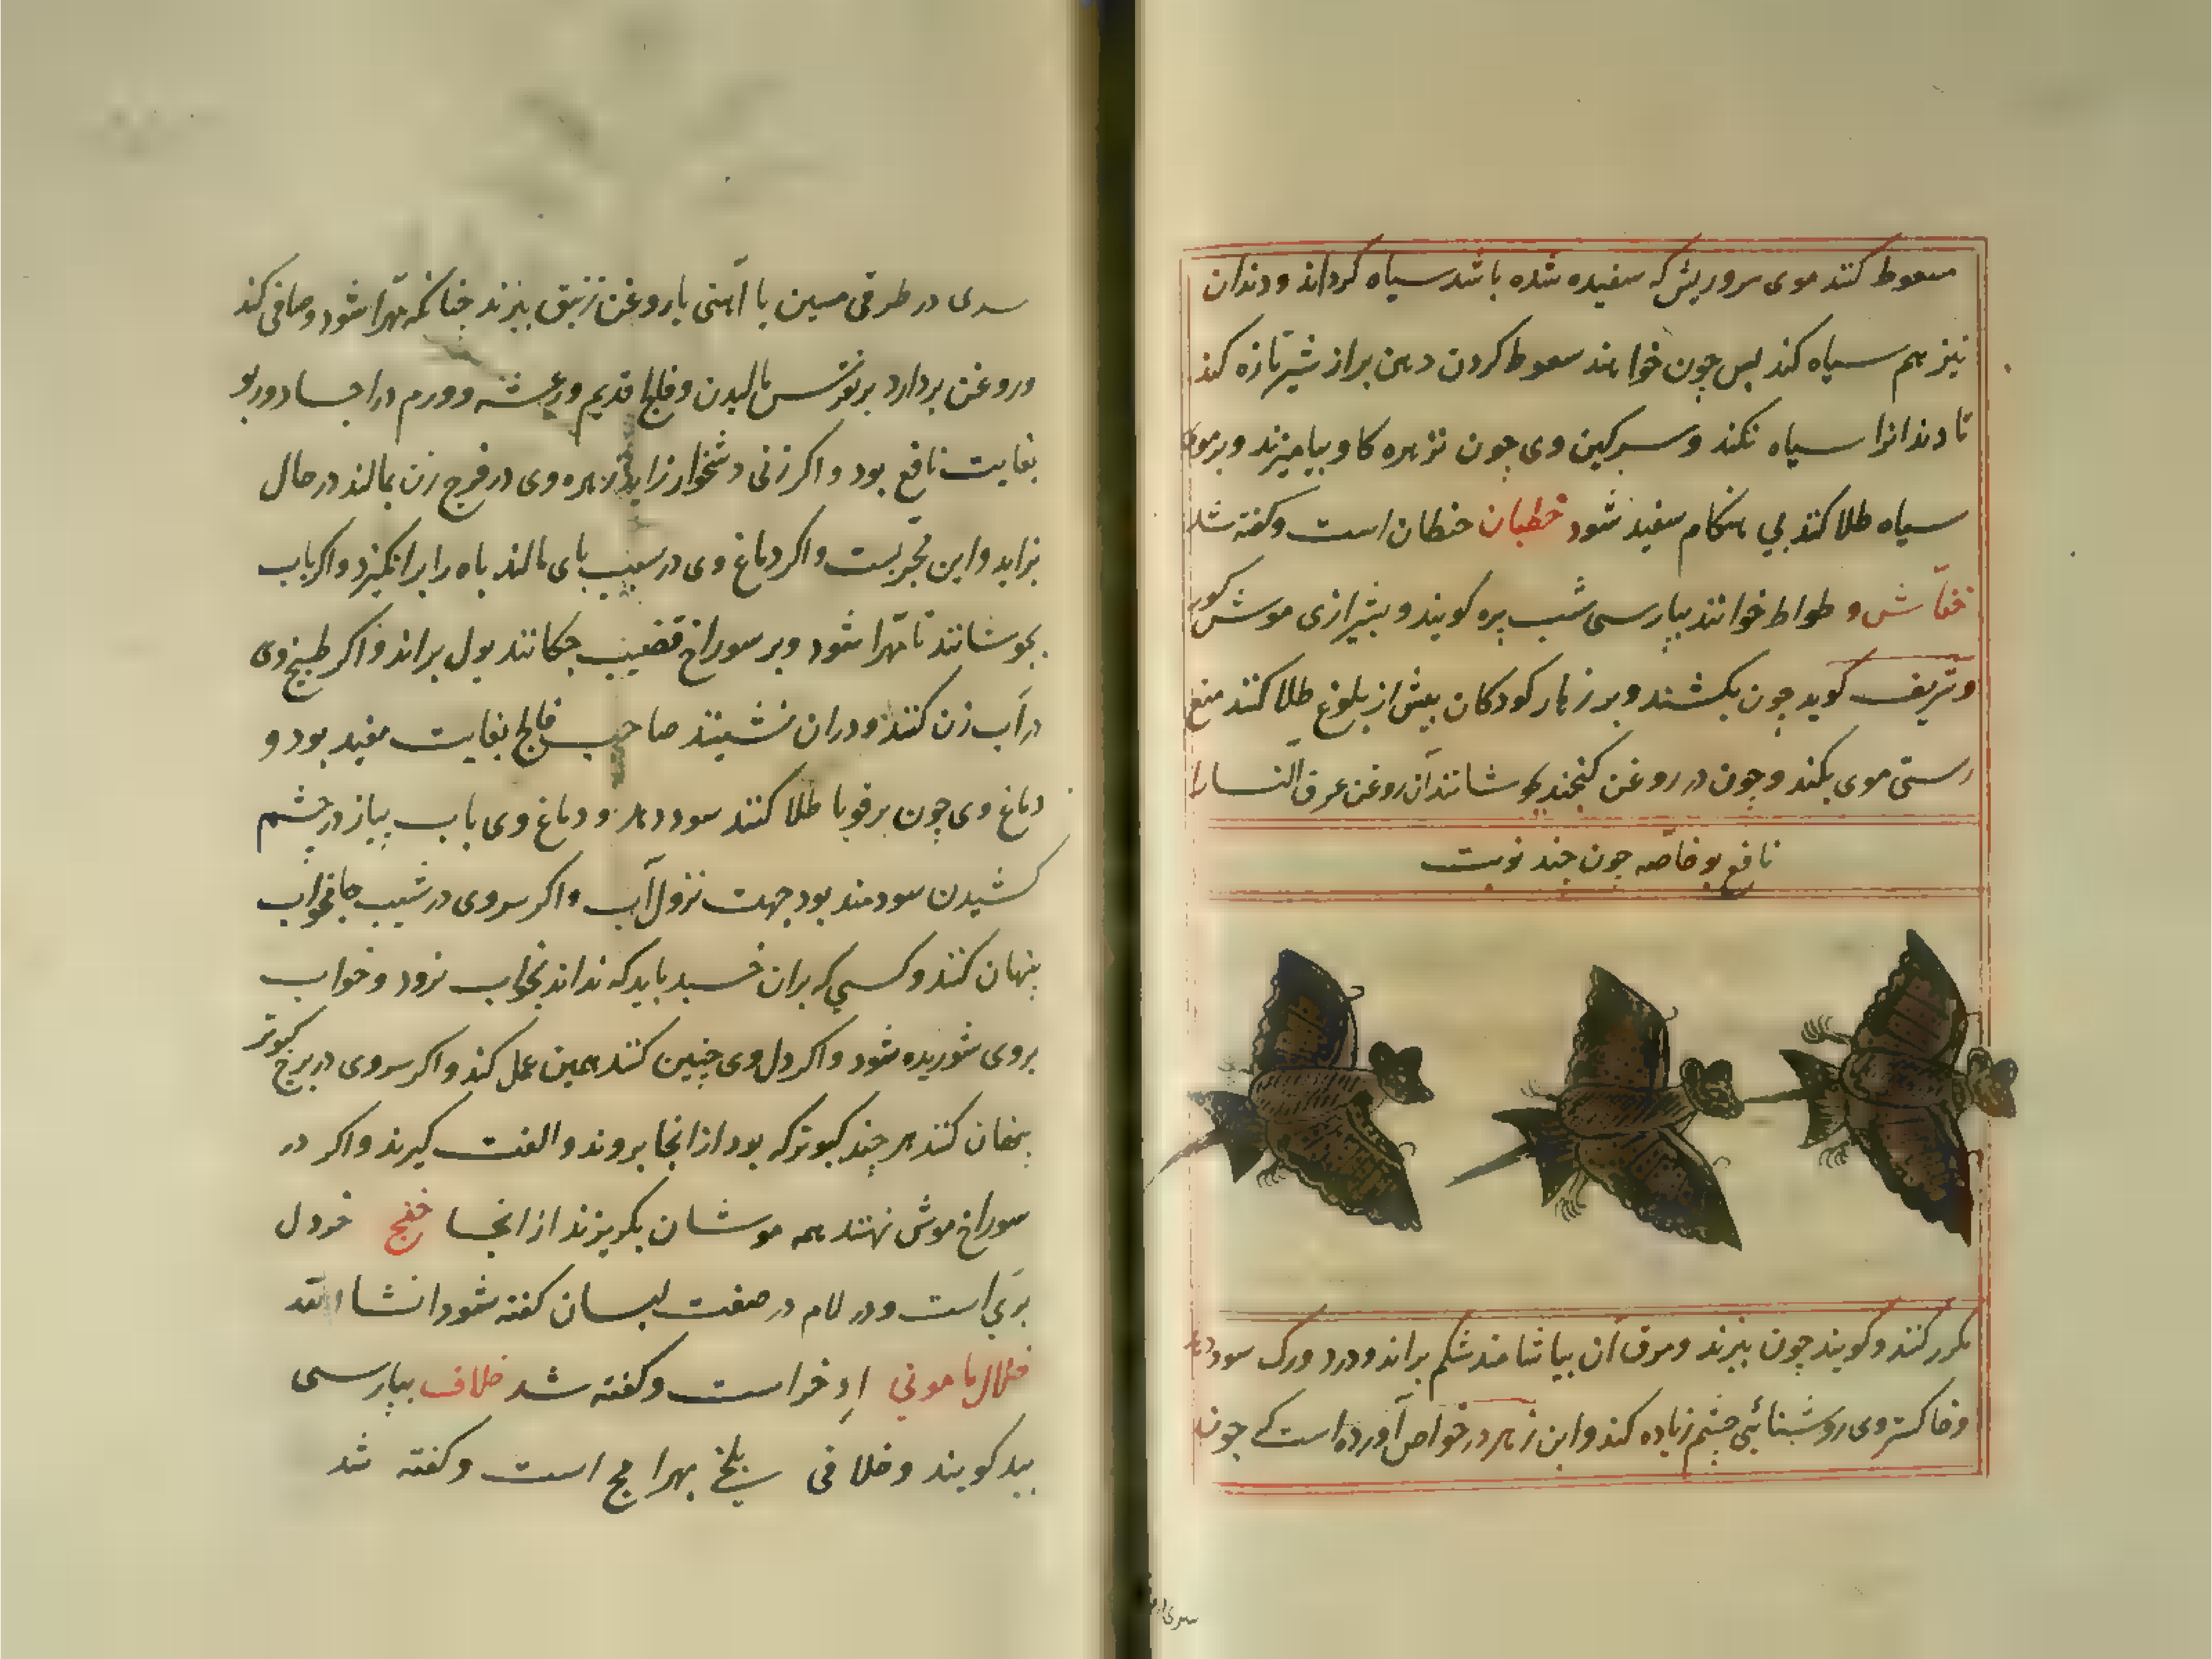 سعوط کنند موی سر و ریش که سفیده شده باشد سیاه کرداند و دندان
نیز هم سیاه کند پس چون خواهند سعوط کردن دهن براز شیر تازه کند
تا دندانرا سیاه نکند و سرکین وی چون بزهره کاو بیامیزند و برموی
سیاه طلا کنند بی هنکام سفید شود خطبان خنطان است و کفته شد
خفاش و طواط خوانند بپارسی شب پره کویند و بشیرازی موش کور
و شریف کوید چون بکشند و بر زهار کودکان پیش از بلوغ طلا کنند منع
رستن موی بکند و چون در روغن کنجند بجوشانند آن روغن عرق النسا را
نافع بو خاصه چون چند نوبت
مکرر کنند و کویند چون بپزند و مرق آن بیاشامند شکم براند و درد ورک سود دهد
و خاکستر وی روشنائی چشم زیاده کند و ابن زهر در خواص آورده است که چون
سری در
سری در ظرفی مسین یا آهنی با روغن زنبق بپزند چنانکه مهرا شود و صافی کند
و روغن بردارد بر نقرس مالیدن و فالج قدیم و رعشه و ورم در اجساد و ربو
بغایت نافع بود و اکر زنی دشخوار زاید زهره وی در فرج زن بمالند در حال
بزاید و این مجربست و اکر دماغ وی در شیب پای مالند باه را برانکیزد و اکر باب
بجوشانند تا مهرا شود و بر سوراخ قضیب چکانند بول براند و اکر طبیخ وی
در آب زن کنند و دران نشینند صاحب فالج بغایت مفید بود و
دماغ وی چون بر قوبا طلا کنند سود دهد و دماغ وی باب پیاز در چشم
کشیدن سودمند بود جهت نزول آب و اکر سر وی در شیب جامه خواب
پنهان کنند و کسی که بران خسبد باید که نداند بخواب نرود و خواب
بروی شوریده شود و اکر دل وی چنین کنند همین عمل کند و اکر سر وی در برج کبوتر
پنهان کنند هر چند کبوتر که بود از انجا بروند و الفت کیرند و اکر در
سوراخ موش نهند همه موشان بکریزند از انجا خفج خردل
بری است و در لام در صفت لبسان کفته شود انشا الله
خلال مامونی اذخر است و کفته شد خلاف بپارسی
بید کویند و خلافی بلخی بهرامج است و کفته شد